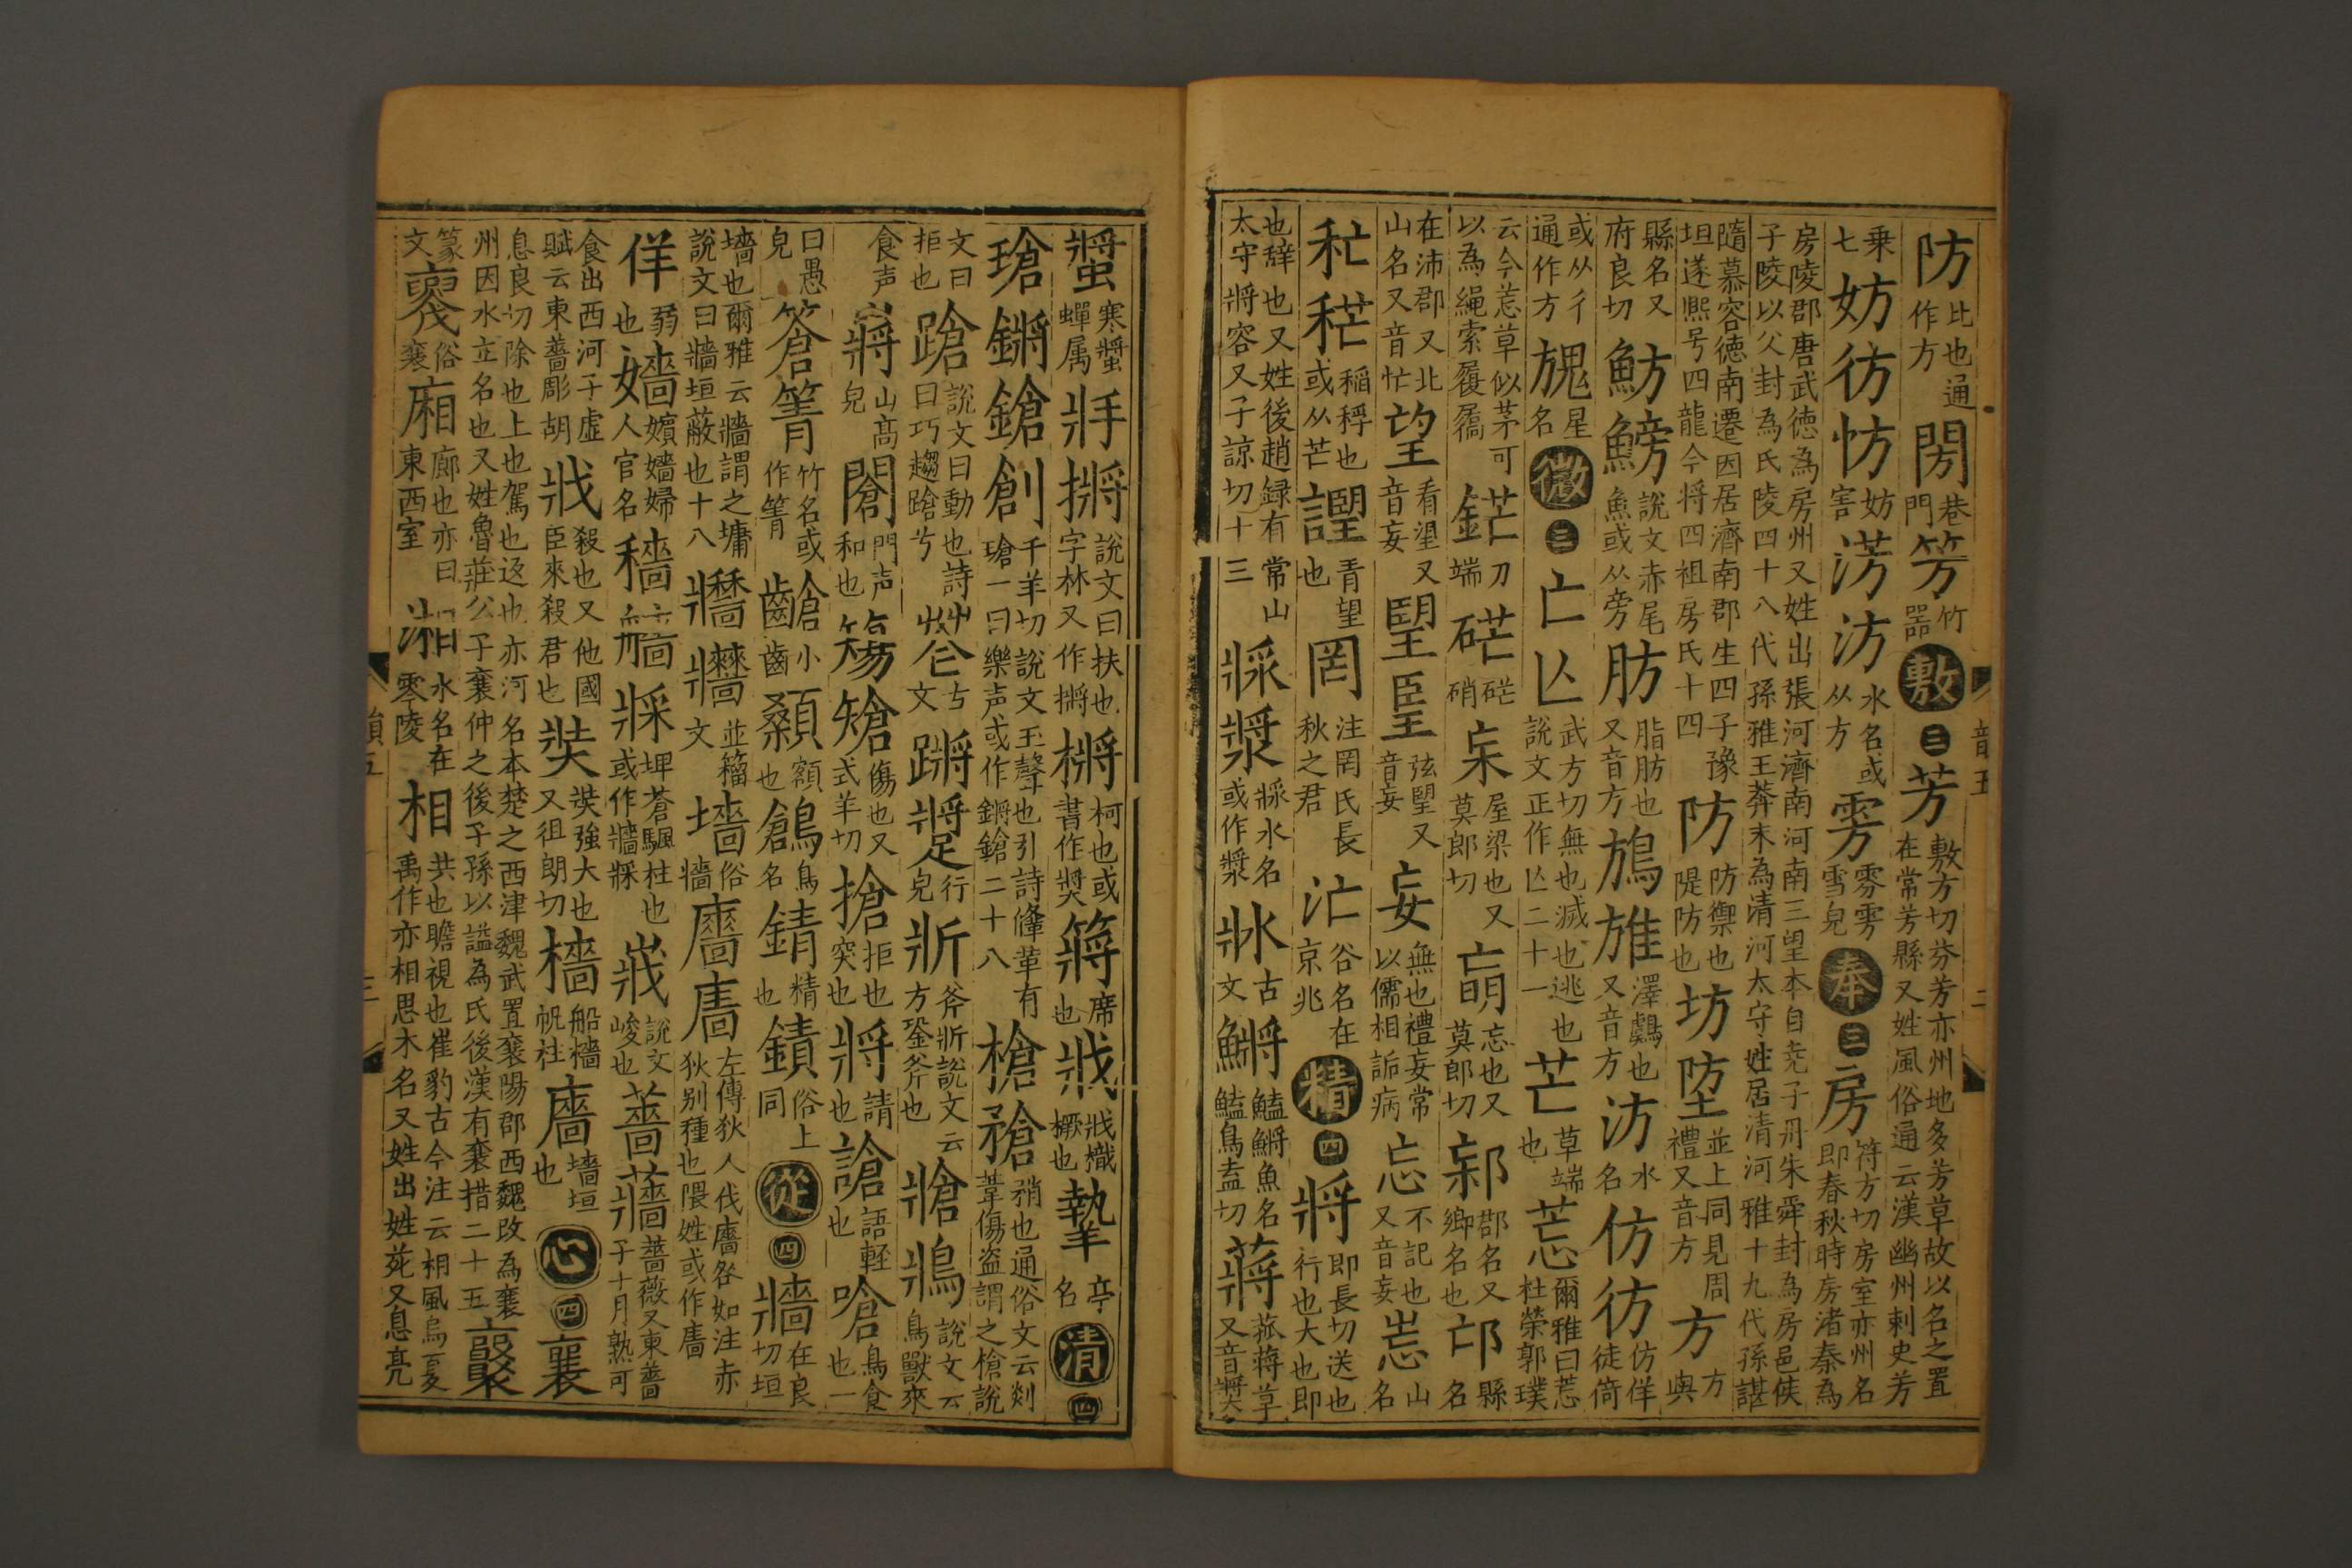 防比也通作方閍巷門竻竹器敷三芳敷方切芬芳亦州地多芳草故以名之置在常芳縣又姓風俗通云漢幽州刺史芳
乗七妨彷㤃妨害淓汸水名或从方雱雱雱雪皃奉三房符方切房室亦州名即春秋時房渚秦為
房陵郡唐武徳為房州又姓出張河濟南河南三望本自尭子丹朱舜封為房邑侯子陵以父封為氏陵四十八代孫雅王莽末為清河太守姓居清河雅十九代孫諶
隨慕容徳南遷因居濟南郡生四子豫坦遂熙号四龍今将四祖房氏十四防防禦也隄防也坊堕並上同見周禮又音方方方與
縣名又府良切魴鰟說文赤尾魚或从旁肪脂肪也又音方鴋䧛澤鸆也又音方汸水名仿彷仿佯徒倚
或从彳通作方䰃星名微三亡亾武方切無也滅也逃也說文正作亾二十一芒草端也莣爾雅曰莣杜榮郭璞
云今莣草似茅可以為繩索履屩鋩刀端硭硭硝宋屋梁也又莫郎切䀮忘也又莫郎切郭郡名又鄉名也邙縣名
在沛郡又北山名又音忙望看望又音妄朢𦣠弦朢又音妄妄無也禮妄常以儒相詬病忘不記也又音妄峃山名
秐䅒稲稃也或从芒謽青望也罔注罔氏長秋之君汒谷名在京兆精四將即長切送也行也大也即
也辞也又姓後趙録有常山太守將容又子諒切十三㢡漿㢡水名或作漿𤕭古文鱂䱟鱂魚名䱟烏盍切蔣菰蔣草又音奬
螿寒螿蟬属𤕰𢪇說文曰扶也字林又作𢪇槳柯也或書作奬蔣席也戕戕樴橛也摯亭名清四
瑲鏘鎗創千羊切說文玉聲也引詩鞗革有瑲一曰樂声或作鏘鎗二十八槍䅮矟也通俗文云剡葦傷盗謂之槍說
文曰拒也蹌說文曰動也詩曰巧趨蹌兮𤕫古文蹡𨄚行皃斨斧斨說文云方銎斧也牄鶬說文云鳥獸來
食声嶈山高皃閶門声和也𥏫𥏻傷也又式羊切搶拒也突也將請也謒語輕也嗆鳥食也一
曰愚皃篬箐竹名或作箐䶜齒小顙額也鶬鳥名錆精也鏼俗上同從四牆在良切垣
墻也爾雅云牆謂之墉說文曰牆垣蔽也十八牆牆並籀文墻俗牆廧廧左傳狄人伐廧咎如注赤狄别種也隗姓或作廧
佯弱也嬙嬪嬙婦人官名穡䅮㢡埤蒼驅柱也或作牆㢡戕說文峻也薔蘠薔薇又東薔子十月熟可
食出西河子虚賦云東薔彫胡戕殺也又他國臣來殺君也奘奘強大也又徂朗切檣船檣帆柱廧墻垣也心四襄
息良切除也上也駕也返也亦河名本楚之西津魏武置襄陽郡西魏改為襄州因水立名也又姓魯莊公子襄仲之後子孫以謚為氏後漢有襄措二十五𧟟
篆文㐮俗襄廂廊也亦曰東西室湘水名在零陵相共也瞻視也崔豹古今注云相風烏夏禹作亦相思木名又姓出姓苑又息亮